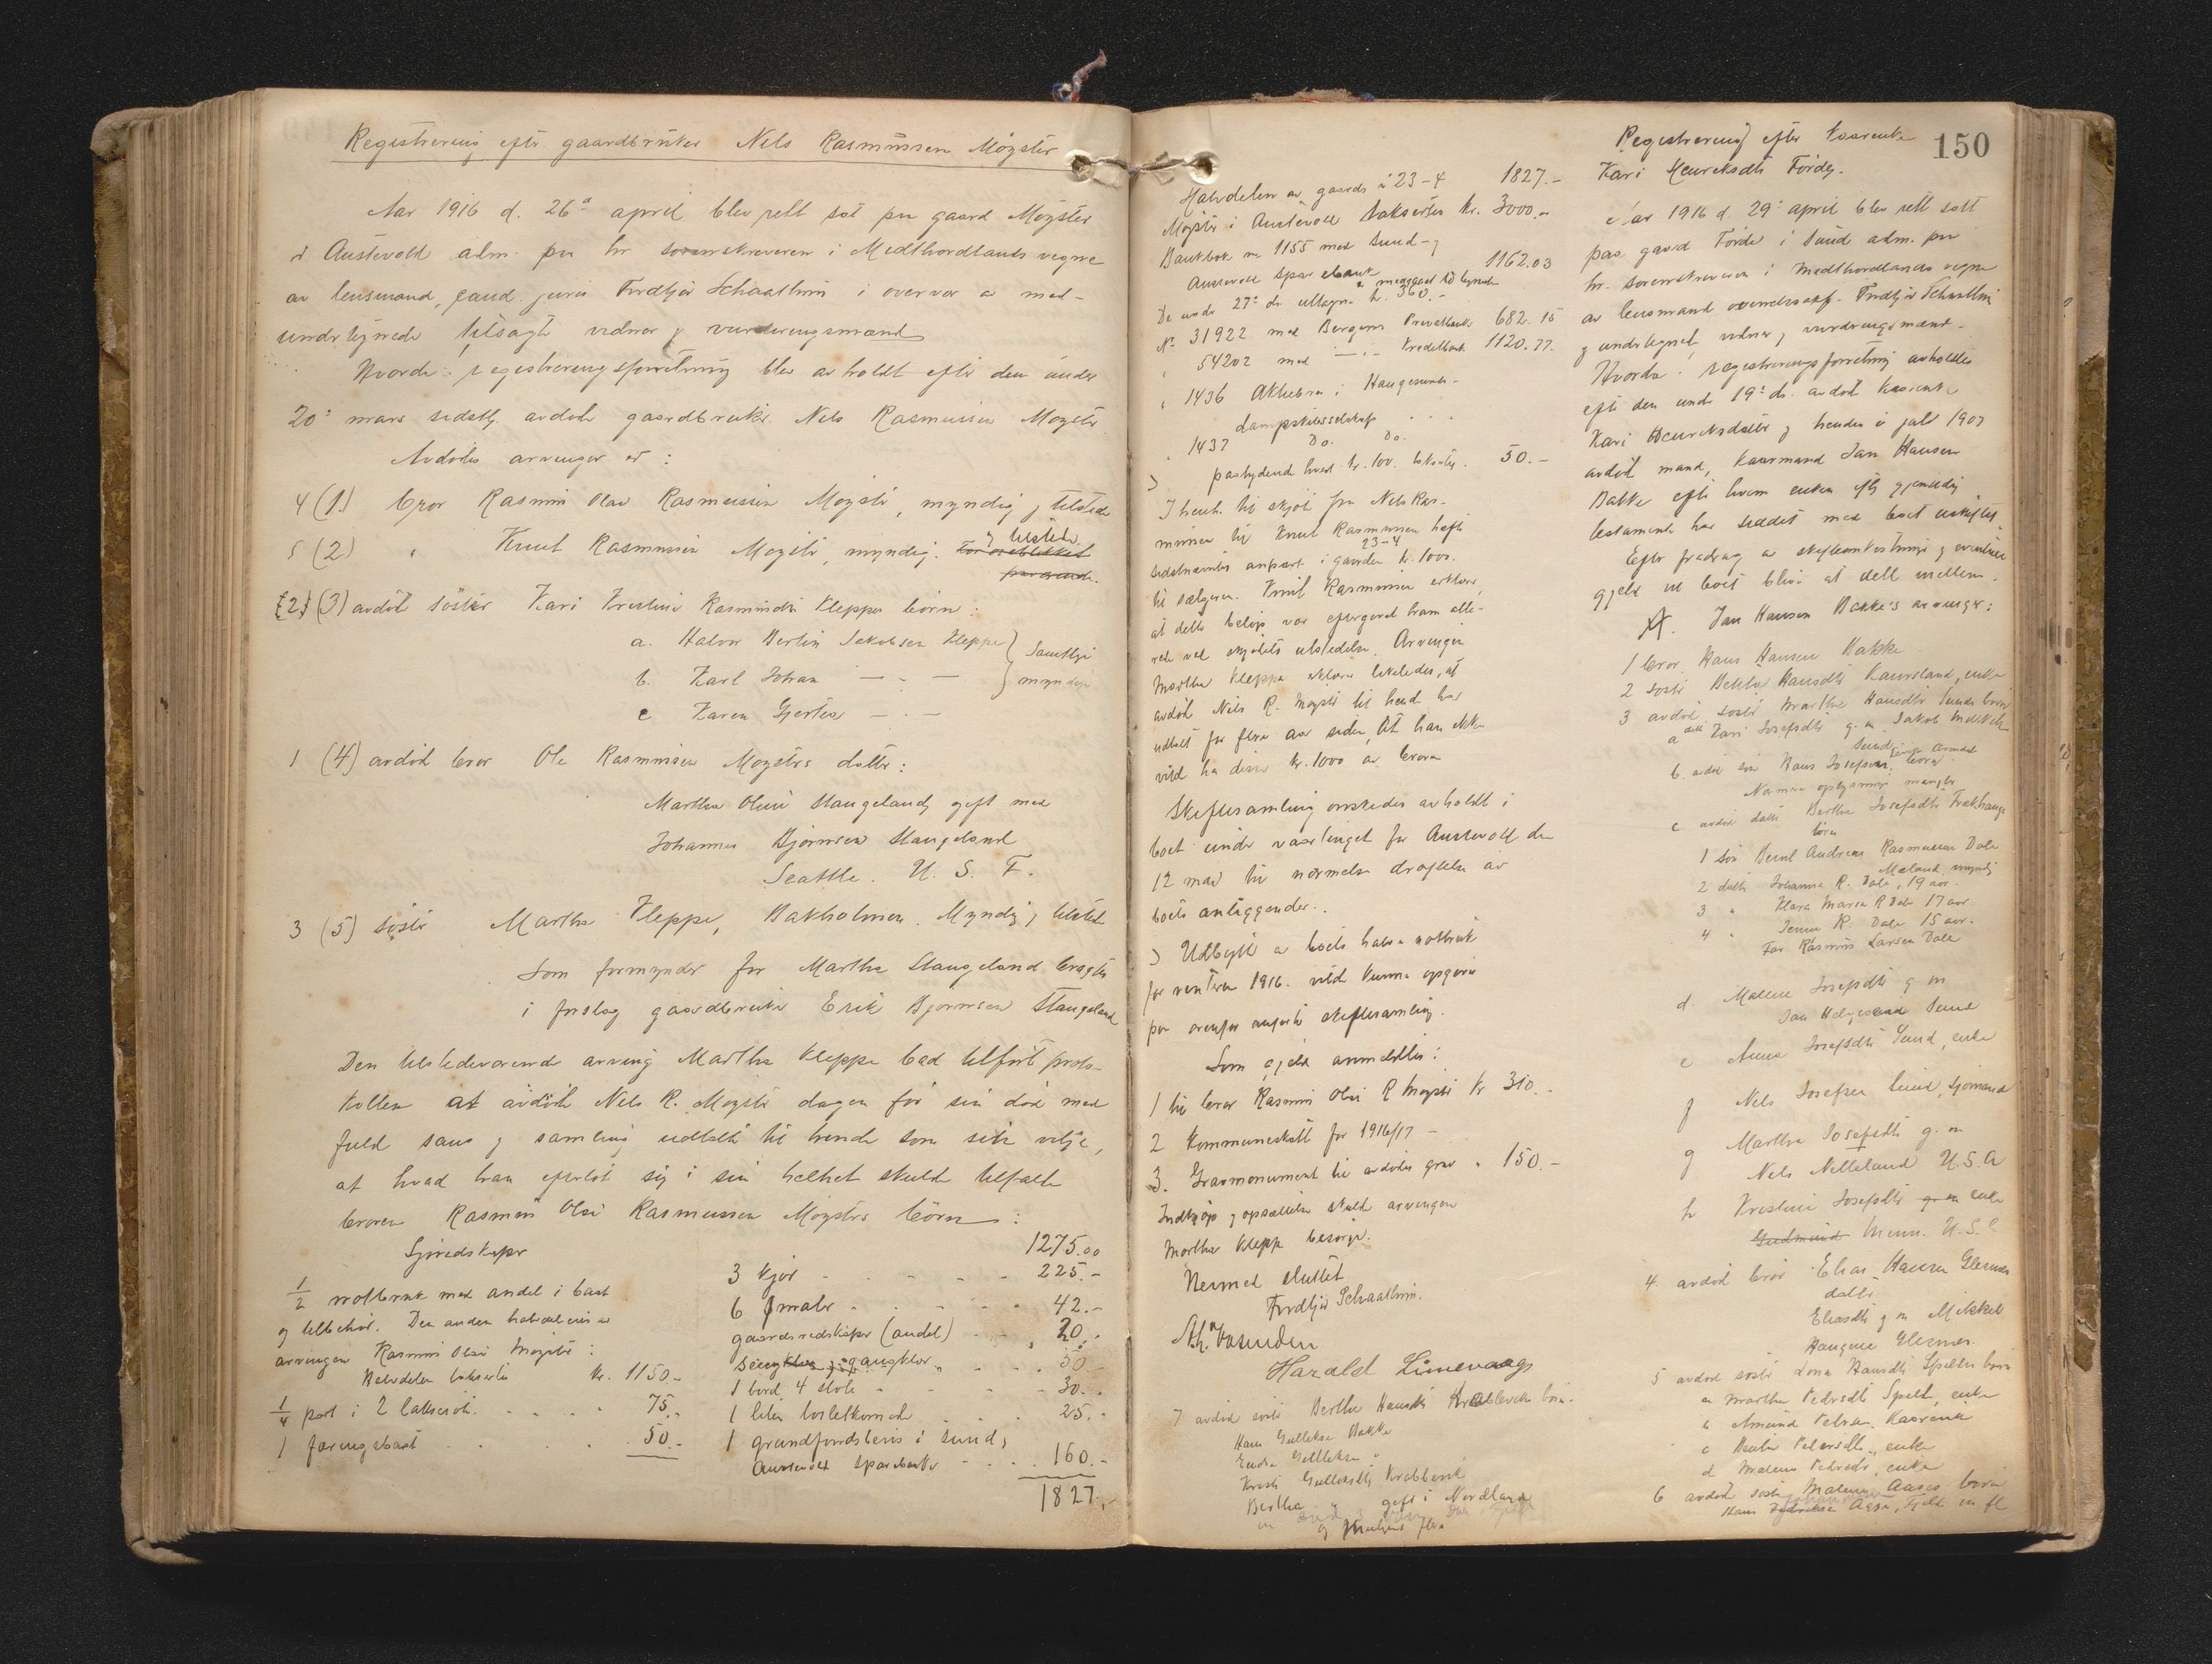 Registrering eftr gaardbruker Nels Rasmussen Møgster
Aar 1916 d. 26de april blev rett sat paa gaard Møgster
i Austevold adm. paa hr sorenskriveren i Midthordlands vegne
av lensmand, cand. juris Fredtjov Schaathun i overvær av med-
undertegnede tilsagte vidner og vurderingsmænd
Hvorda: registreringsforretning blev avholdt efter den under
20: mars sidstl. avdøde gaardbruker Nels Rasmussen Møgster
Avdødes arvinger er:
4 (1.) bror Rasmus Olai Rasmussen Møgster, myndig, tilstede
5 (2) " Knut Rasmussen Møgster, myndig. og tilstede.
For øieblikket
fraværende.
{2} (3) avdød søster Kari Kristine Rasmusdtr Kleppe børn:
a. Halvor Bertin Jakobsen Kleppe } Samtlige
b. Karl Johan — " — } myndige
c Karen Gjertine — " —
1 (4) avdød bror Ole Rasmussen Møgsters datter:
Martha Oline Staugeland, gift med
Johannes Bjørnsen Staugeland
Seattle. U. S. F.
3 (5) søster Martha Kleppe, Bakholmen. Myndig, tilstede
Som formynder for Martha Staugeland bragtes
i forslag gaardbruker Erik Bjørnsen Staugeland
Den tilstedeværende arving Martha Kleppe bad tilført proto-
kollen at avdøde Nels R. Møgster dagen før sin død med
fuld sans og samling udtalte til hende som sit vilje,
at hvad han efterlot sig i sin helhet skulde tilfalde
broren Rasmus Olai Rasmussen Møgsters børn:
Sjøredskaper
1/2 notbruk med andel i baat
og tilbehør. Den anden halvdel eies av
arvingen Rasmus Olai Møgster:
Halvdelen taksertes kr. 1150.-
1/4 part i 2 laksenøt. 75.-
1 færingsbaat 50.-
1275.00
3 kjør - - - - - 225.-
6 smaler - - - - 42.-
gaardsredskaper (andel) - - 20.-
Sengklær og gangklær - - - 50.-
1 bord 4 stole - - - - 30.-
1 liten toiletkomode - - - 25.-
1 grundfondsbevis i Sund og
Austevold Sparebank - - - 160.-
1827.-
Halvdelen av gaards nr 23-4 1827.-
Møgster i Austevold taksertes kr. 3000.-
Bankbok nr 1155 med Sund- og
Austevold Sparebank 1162.03
De under 27: ds. uttagne kr. 360.-
No 31922 med Bergens Privatbank 682.15
" 54202 med — " — Kreditbank 1120.77.
" 1436 Aktiebrev i Haugesunds-
Dampskibsselskap . . .
" 1437 Do. Do.
paalydende hvert kr. 100. taksertes. 50.-
I henh. til skjøte fra Nels Ras-
mussen til Knut Rasmussen hefter
23-4
sidstnævntes anpart i gaarden kr. 1000.
til sælgeren. Knut Rasmussen erklærer,
at dette beløp var eftergivet ham alle-
rede ved skjøtets utstedelse. Arvingen
Martha Kleppe erklærer likeledes, at
avdøde Nels R. Møgster til hende har
udtalt for flere aar siden, at han ikke
vild ha disse kr. 1000 av broren
Skiftesamling ønskedes avholdt i
boet under vaartinget for Austevold den
12 mai til nærmere drøftelse av
boets anliggender.
Udbytte av boets halve notbruk
for vinteren 1916. vilde kunne opgives
paa ovenfor anførte skiftesamling.
Som gjeld anmeldtes:
1 til bror Rasmus Olai R Møgster kr 310.-
2 Kommuneskatt for 1916/17 -
3. Gravmonument til avdødes grav " 150.-
Indkjøp og opsættelse skulde arvingen
Martha Kleppe besørge.
Hermed sluttet
Fredtjov Schaathun.
Harald Limevaag
7 avdød søster Berthe Hansdtr Krabbeviks børn.
Hans Gulleksen Bakke
Endre Gulleksen "
Kristi Gulleksdtr Krabbevik
Bertha " gift i Nordland
og muligens flere
150
Registrering efter kaarenke
Kari Henriksdtr Førde.
Aar 1916 d. 29: april blev rett satt
paa gaard Førde i Sund adm. paa
hr. sorenskriveren i Midthordlands vegne
av lensmand overrettssakf. Fredtjov Schaathun
og undertegnet vidner og vurderingsmænd.
Hvorda: registreringsforretning avholdtes
efter den under 19: ds. avdød kaarenke
Kari Henriksdatter og hendes i juli 1907
avdød mand, kaarmand Jan Hansen
Bakke efter hvem enken iflg gjensidig
testamente har siddet med boet uskiftet.
Efter fradrag av skifteomkostninger og eventuel
gjeld vil boet blive at dele mellem.
A. Jan Hansen Bakke's arvinger:
1 bror Hans Hansen Bakke
2 søster Hansdtr Kausland, enke
3 avdød søster Marthe Hansdtr Sunds børn
a datter Kari Josefsdtr g. m. Jakob Mikkels
Sund
b. avdød søn Hans Josefsens børn
Nærmere oplysninger mangler
c avdød datter Berthe Josefsdtr Trækhauge
børn
1 søn Bernt Andreas Rasmussen Dale
Mæland, myndig
2 datter Johanna R. Dale, 19 aar.
3 " Klara Maria R Dale 17 aar
4 " Jenny R. Dale 15 aar.
Far Rasmus Larsen Dale
d. Malene Josefsdtr g m
Jan Helgesen Sund
e Anna Josefsdtr Sund, enke
f Nels Josefsen Sund, sjømand
g Martha Josefsdtr g. m
Nels Nelleland U.S.A
h Kristine Josefsdtr g. m enke
Gudmund Minn. U.S.A
4. avdød bror Elias Hansen Glesnes
datter
Eliasdtr g m Mikkel
Haugen Glesnes.
5 avdød søster Lona Hansdtr Spilds børn
a Martha Pedersdtr Spild, enke
b Amund Petersen Kaarevik
c Petersdtr, enke
d Malene Pedersdtr, enke
6 avdød søster Malene Aases børn
Hans Aase, Fjeld m fl